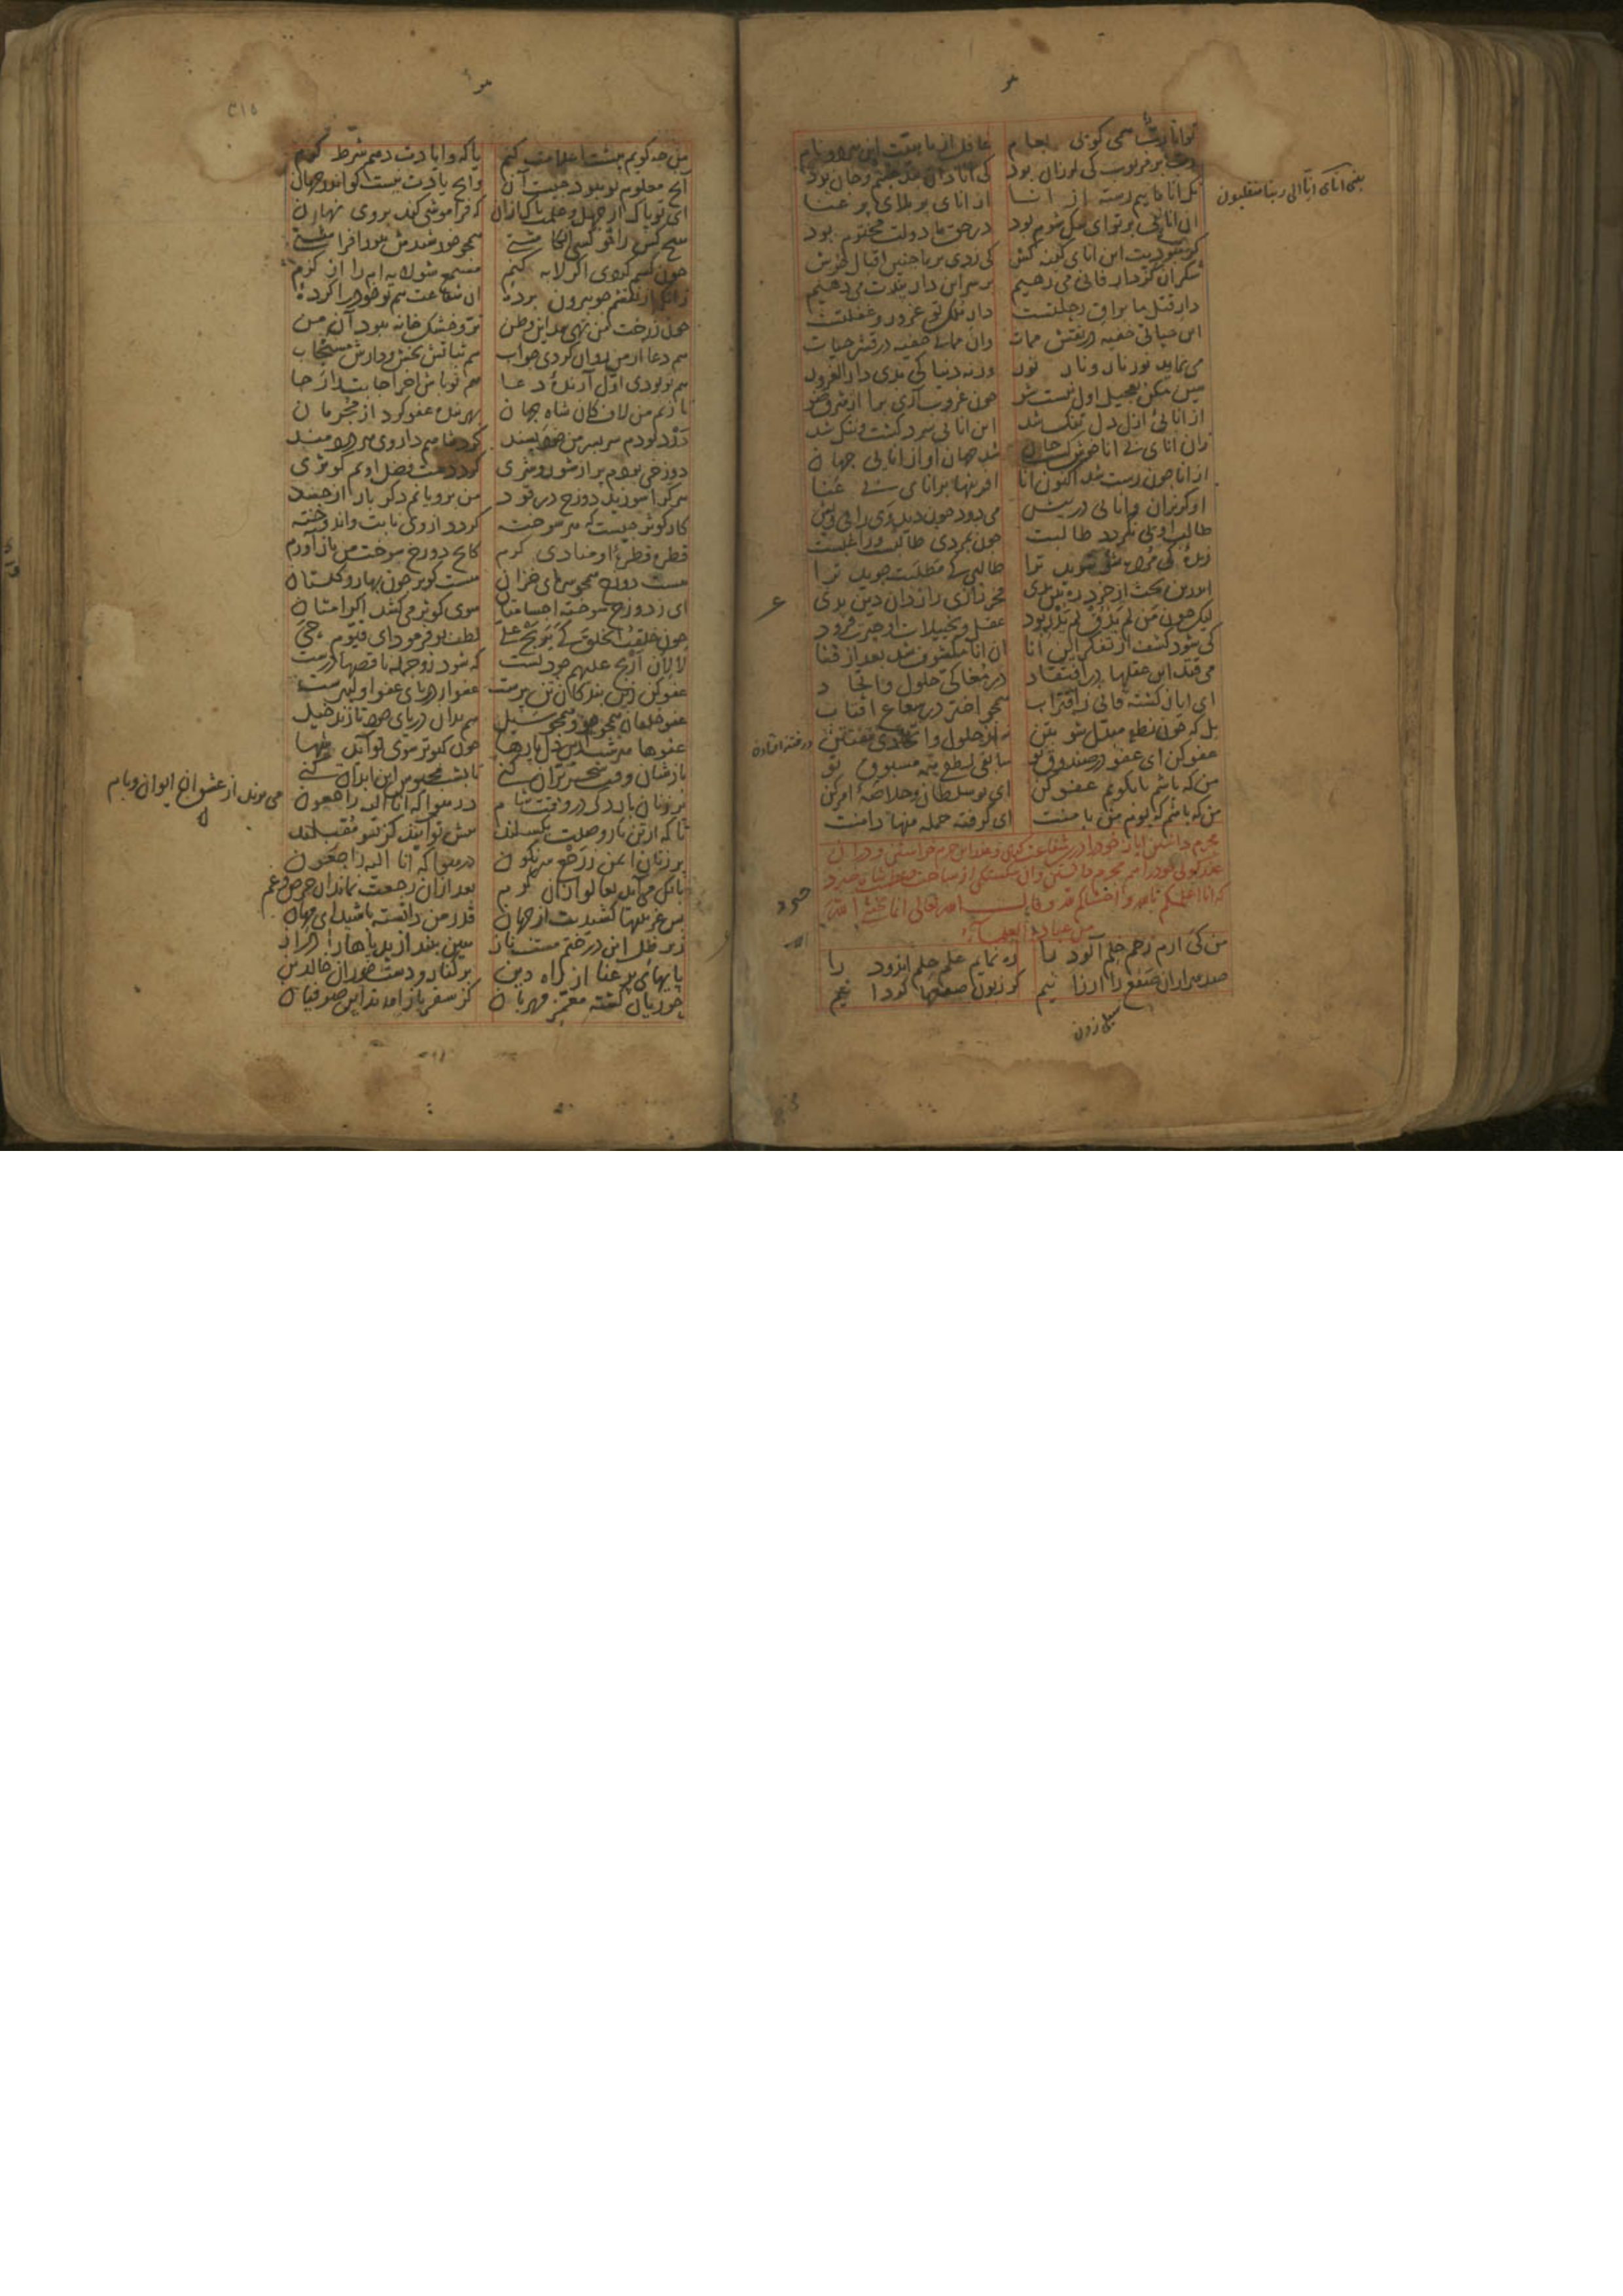 تو انا رب همی کویی بعام
غافل از ماهیت این هر دو نام
رب بر مربوب کی لرزان بود
کی انا دان بند جسم و جان بود
نک انا ماییم رسته از انا
از انای پر بلای پر عنا
ان انایی بر تو ای سک شوم بود
در حق ما دولت محتوم بود
کر نبودیت این انای کینه کش
کی زدی بر ما چنین اقبال خوش
شکر ان کز دار فانی می رهیم
بر سر این دار پندت می دهیم
دار قتل ما براق رحلتست
دار ملک تو غرور و غفلتست
این حیاتی خفیه در نقش ممات
وان مماتی خفیه در قشر حیات
می نماید نور نار و نار نور
ورنه دنیا کی بدی دار الغرور
هین مکن تعجیل اول نیست شو
چون غروب آری برا از شرق ضو
از انایی ازل دل تنک شد
این انایی سرد کشت و ننک شد
زان انای بی انا خوش کشت جان
شد جهان او از انایی جهان
از انا چون رست شد اکنون انا
افرینها بر انای بی عنا
او کریزان و انایی در پیش
می دود چون دید وی را بی ویش
طالب اویی نکردد طالبت
چون بمردی طالبت شد مطلبت
زنده کی مرده شو شوید ترا
طالبی کی مطلبت جوید ترا
اندرین بحث از خرد ره بین بدی
فخر رازی رازدان دین بدی
لیک چون من لم یذق لم یدر بود
عقل و تخییلات او حیرت فزود
کی شود کشف از تفکر این انا
ان انا مکشوف شد بعد از فنا
می فتد این عقلها در افتقاد
در مغاکی حلول و اتحاد
ای ایاز کشته فانی ز اقتراب
همچو اختر در شعاع افتاب
بل که چون نطفه مبدل شو بتن
نه از حلول و اتحادی مفتتن
عفو کن ای عفو در صندوق تو
سابق لطفی همه مسبوق تو
من که باشم تا بکویم عفو کن
ای تو سلطان و خلاصه امر کن
من که باشم که بوم من با منت
ای کرفته جمله منها دامنت
مجرم داشتن ایاز خود را درین شفاعت کری و عذر این جرم خواستن و در ان
عذر کویی خود را هم مجرم داشتن و این شکستکی از شناخت عظمت شاه خیزد
که انا اعلمکم بالله و اخشاکم لله و قال الله تعالی انما یخشی الله
من عباده العلماء
من کی ارم رحم حلم آلود را
ره نمایم علم حلم اندود را
صد هزاران صفع را ارزانیم
کر زبون صفعها کردانیم
یعنی انای انا الی ربنا منقلبون
در فتنه افتاده
سیلی زدن
من چه کویم پیشت اعلامت کنم
یا که وا یادت دهم شرط کرم
آنچ معلوم تو نبود چیست آن
وانچ یادت نیست کو اندر جهان
ای تو پاک از جهل و علمت پاک ازان
که فراموشی کند بر وی نهان
هیچ کس را تو کسی انکاشتی
همچو خورشیدش بنور افراشتی
چون کسم کردی اکر لابه کنم
مستمع شو لابه ام را از کرم
زانک از نقشم چو بیرون برده
ان شفاعت هم تو خود را کرده
چون ز رخت من تهی شد این وطن
تر و خشک خانه نبود آن من
هم دعا از من روان کردی چو اب
هم ثباتش بخش و دارش مستجاب
هم تو بودی اول آرنده دعا
هم تو باش اخر اجابت را رجا
تا زنم من لاف کان شاه جهان
بهر بنده عفو کرد از مجرمان
درد بودم سر بسر من خودپسند
کرد شاهم داروی هر دردمند
دوزخی بودم پر از شور و شری
کرد دست فضل اویم کوثری
هر کرا سوزید دوزخ در قود
من برویانم دکر بار از جسد
کار کوثر چیست که هر سوخته
کردد از وی نابت و اندوخته
قطره قطره او منادی کرم
کانچ دوزخ سوخت من باز آورم
هست دوزخ همچو سرمای خزان
هست کوثر چون بهار و کلستان
ای ز دوزخ سوخته اجسامتان
سوی کوثر می کشد اکرامتان
چون خلقت الخلق کی یربح علی
لطف تو فرمود ای قیوم حی
لا لان اربح علیهم جود تست
که شود زو جمله ناقصها درست
عفو کن زین بندکان تن پرست
عفو از دریای عفو اولیترست
عفو خلقان همچو جو و همچو سیل
هم بدان دریای خود تازند خیل
عفوها هر شب ازین دل پارها
چون کبوتر سوی تو آید شها
بازشان وقت سحر پران کنی
تا بشب محبوس این ابدان کنی
پر زنان بار دکر در وقت شام
می پرند از عشق ان ایوان و بام
تا که از تن تار وصلت بکسلند
پیش تو آیند کز تو مقبلند
پر زنان ایمن ز رجع سرنکون
در هوا که انا الیه راجعون
بانک می آید تعالوا زان کرم
بعد ازان رجعت نماند ان حرص و غم
بس غریبیها کشیدیت از جهان
قدر من دانسته باشید ای مهان
زیر ظل این درختم مست ناز
هین بیندازید پاها را دراز
پایهای پر عنا از راه دین
بر کنار و دست حوران خالدین
حوریان کشته مغمز مهربان
کز سفر باز امدند این صوفیان